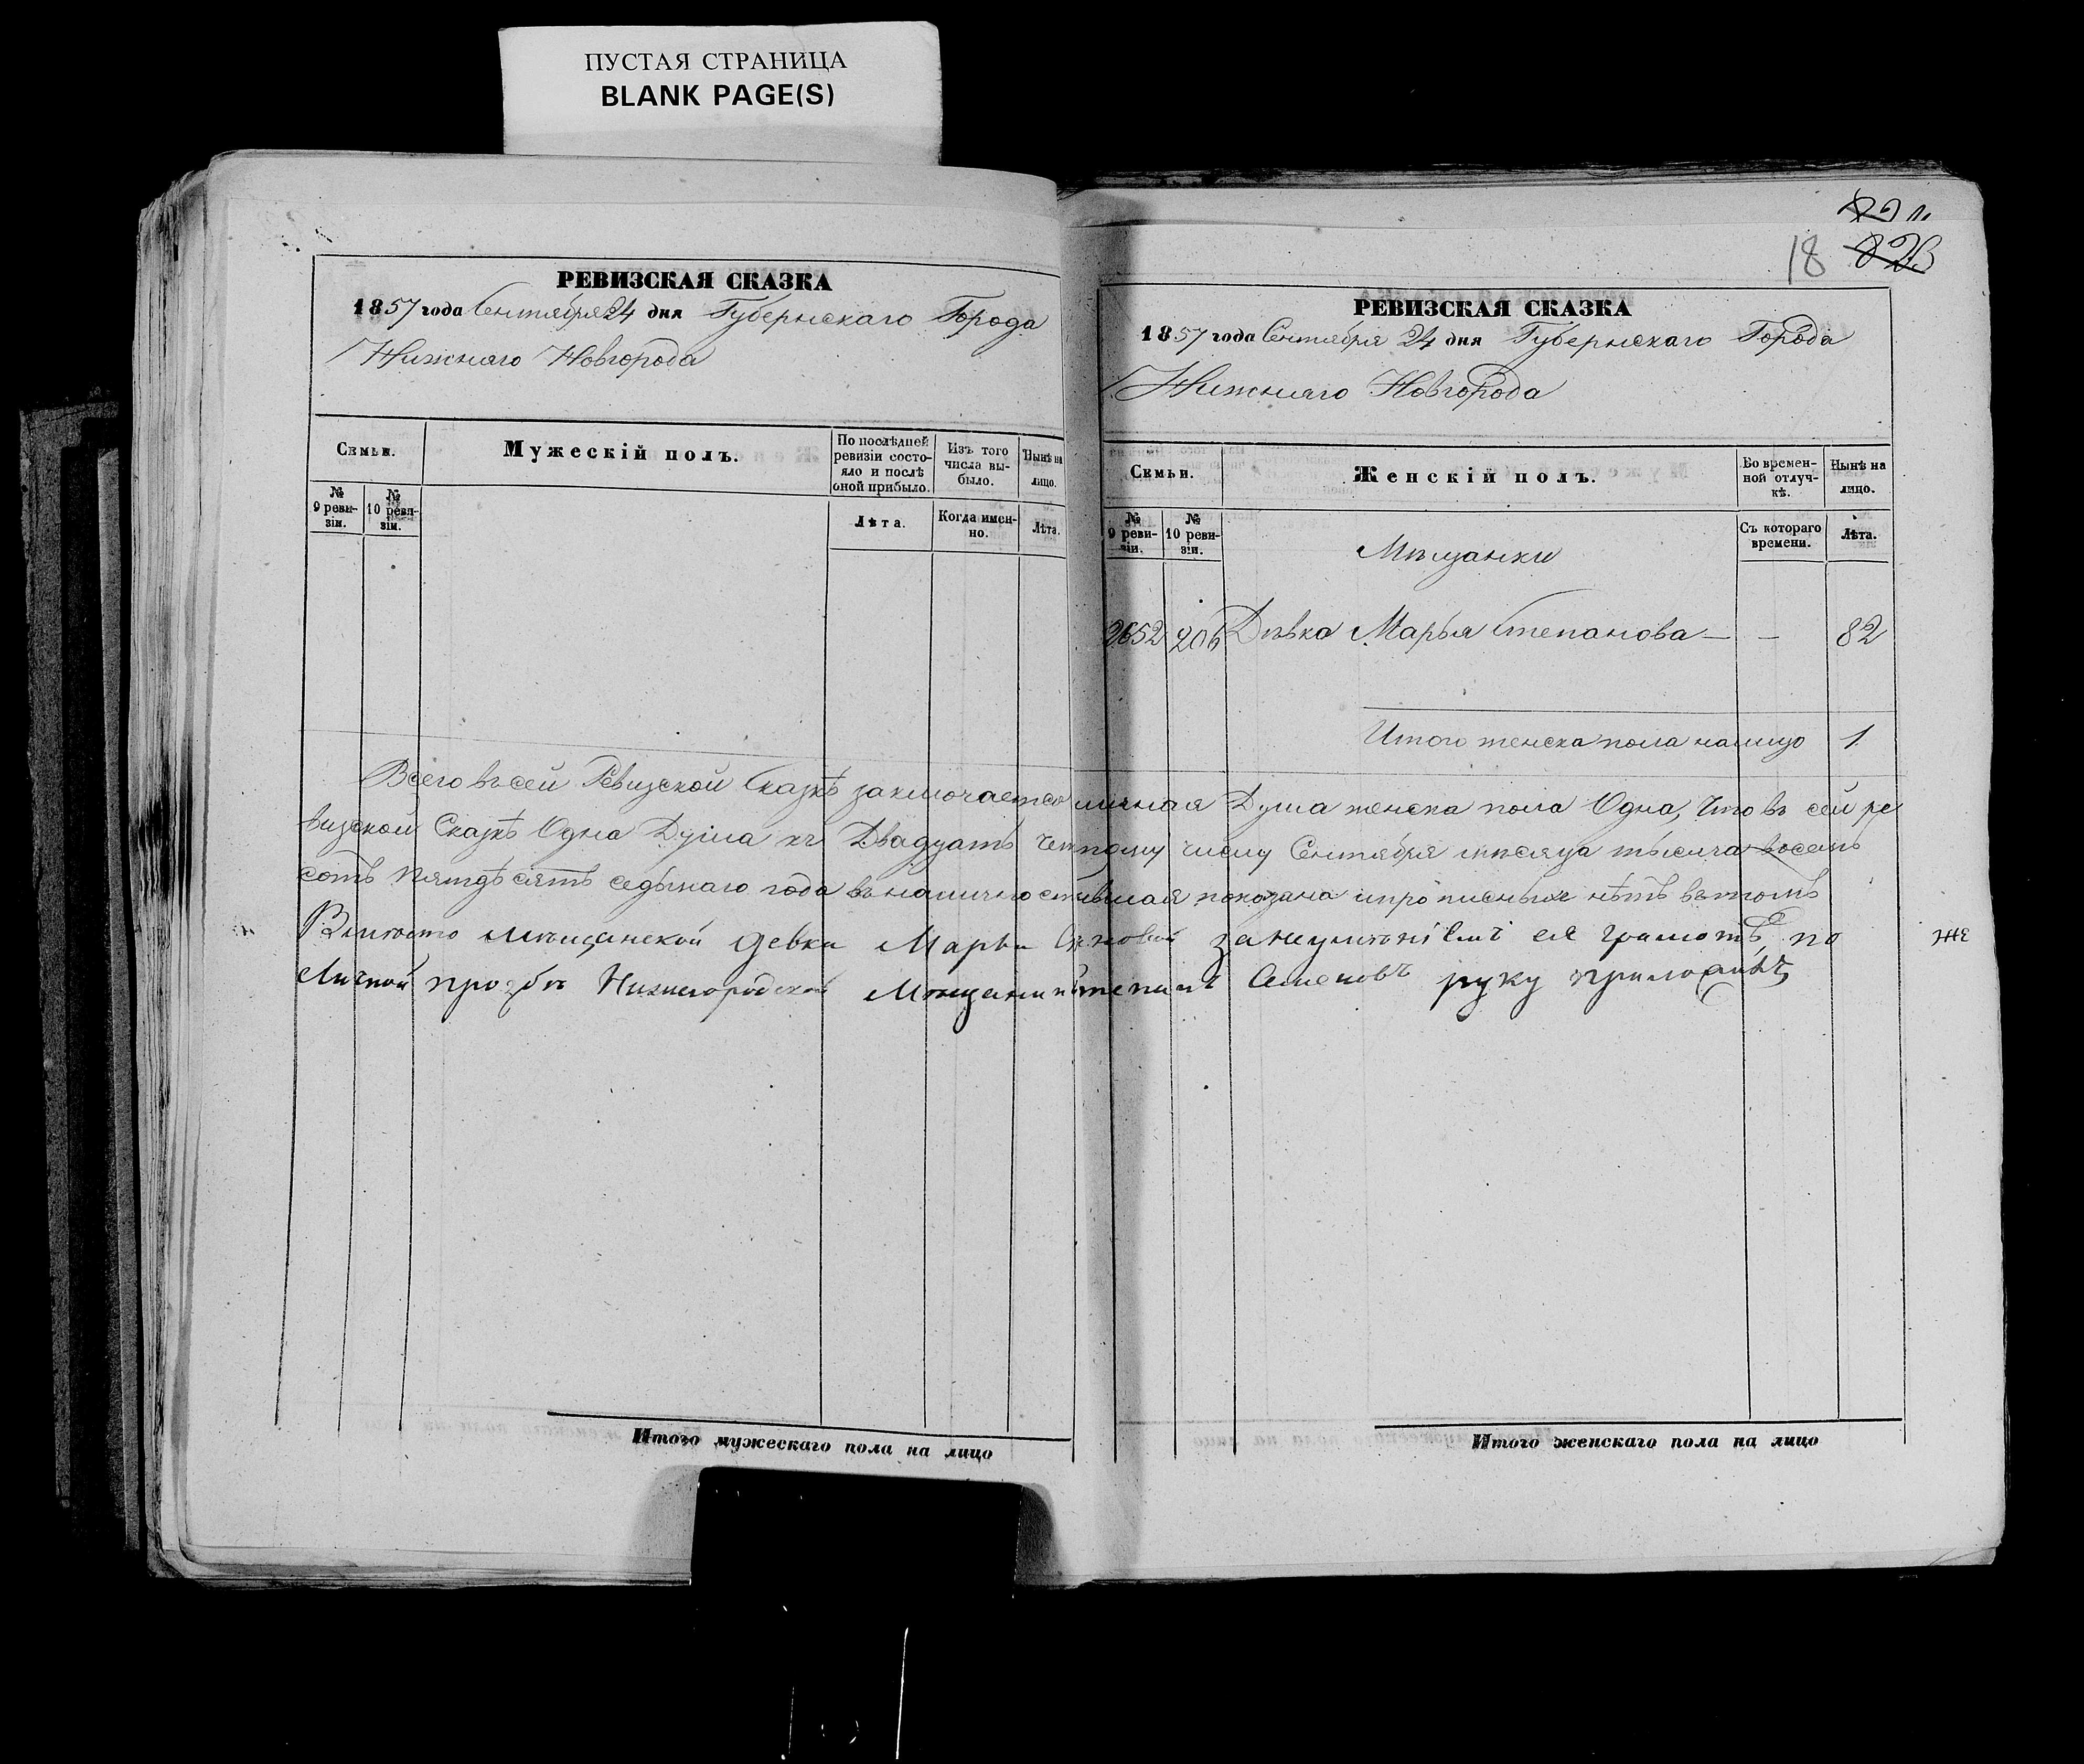 ПУСТАЯ СТРАНИЦА
BLANK PAGE(S)
18 823
РЕВИЗСКАЯ СКАЗКА
1857 года Сентября 24 дня Губернскаго Города
Нижняго Новгорода
Семьи.
Мужескій полъ.
По послѣдней ревизіи состояло и послѣ оной прибыло.
Изъ того числа выбыло.
Нынѣ на лицо.
№ 9 ревизіи.
№ 10 ревизіи.
Лѣта.
Когда именно.
Лѣта.
РЕВИЗСКАЯ СКАЗКА
1857 года Сентября 24 дня Губернскаго Города
Нижняго Новгорода
Семьи.
Женскій полъ.
Во временной отлучкѣ.
Нынѣ на лицо.
№ 9 ревизіи.
№ 10 ревизіи.
Съ котораго времени.
Лѣта.
Мѣщанки
2652 206 Дѣвка Марья Степанова — — 82
Итого женска пола налицо 1
Всего въ сей Ревизской Сказкѣ заключается личная Душа женска пола Одна, Что въ сей ре
визской Сказкѣ Одна Душа къ Двадцать Четвому числу Сентября мѣсяца тысяча восемь
сотъ пятдѣсятъ седьмаго года въ наличности показана и прописныхъ нѣтъ въ томъ
Вместо мѣщанской девки Марьи за неуменіемъ ея грамотѣ, по же
личной прозбѣ Нижегородской Мещанинъ Степанъ Семеновъ руку приложилъ
Итого мужескаго пола на лицо
Итого женскаго пола на лицо